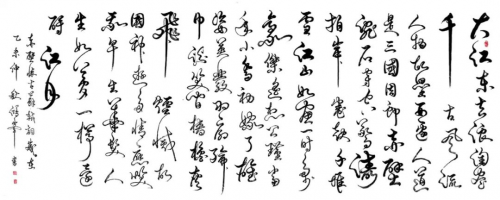 大江东去浪淘尽
千古风流
人物故垒西边人道
是三國周郎赤壁
乱石穿空惊涛
拍岸卷起千堆
雪江山如画一时多少
豪傑遥想公瑾当
年小乔初嫁了雄
姿英發羽扇纶
巾谈笑间樯橹灰
飛烟灭故
國神遊多情應笑
我早生華髮人
生如梦一樽還
酹江月
赤壁怀古苏轼词歲在
乙未仲秋書